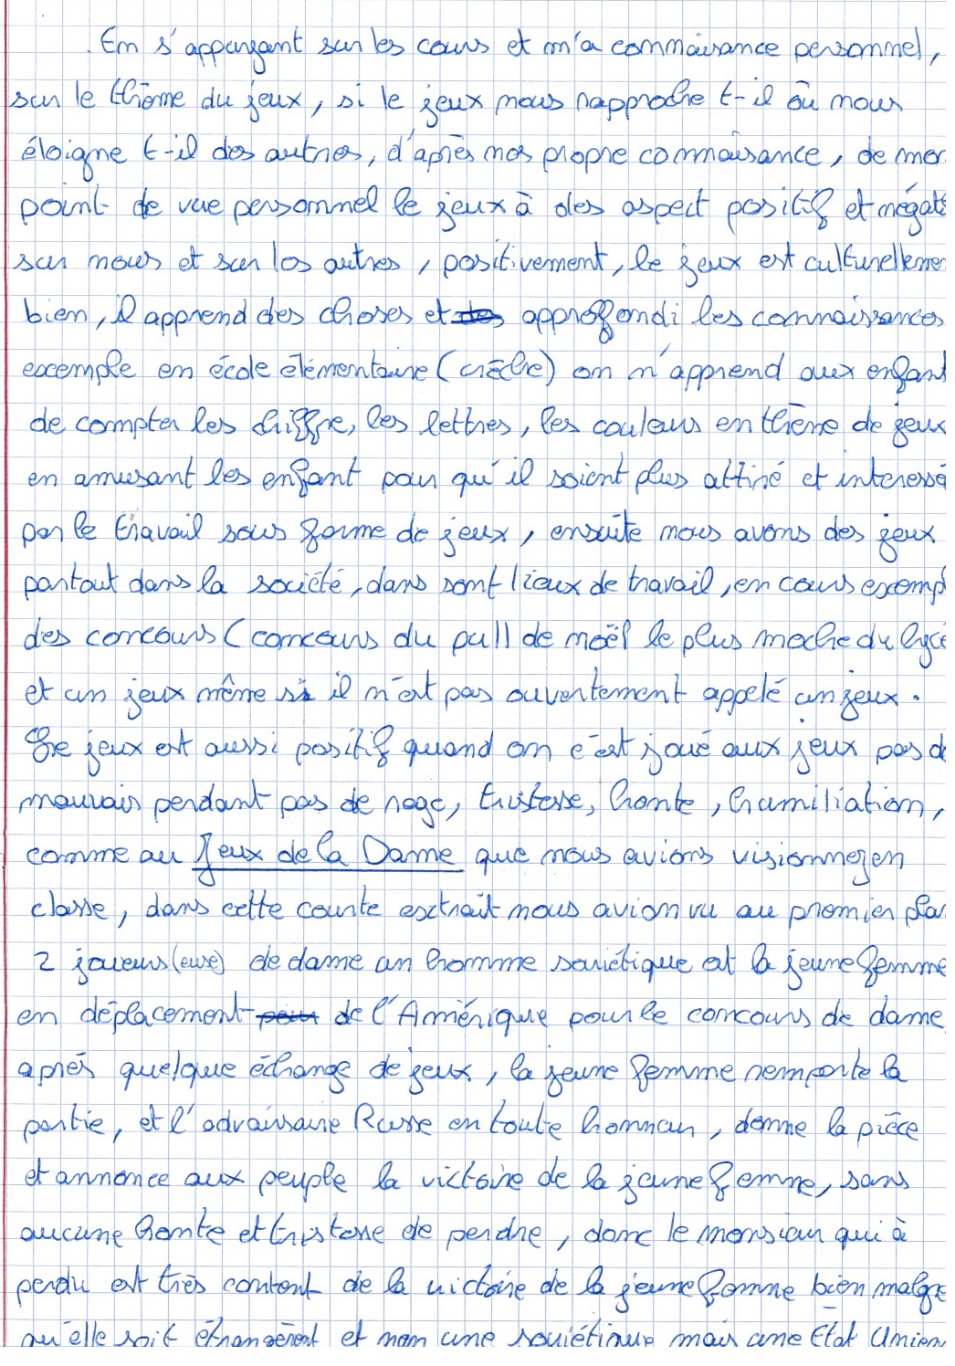 En s'appuyant sur les cours et m'a connaissance personnel,
sur le thème du jeux, si le jeux nous rapproche t-il où nous
éloigne t-il des autres, d'après mes propre connaissance, de mon
point de vue personnel le jeux à des aspect positif et négati
sur nous et sur les autres, positivement, le jeux est culturelleme
bien, il apprend des choses et approfondi les connaissances
excemple en école élémentaire (crèche) on n'apprend aux enfant
de compter les chiffre, les lettres, les couleurs en thème de jeux
en amusant les enfant pour qu'il soient plus attiré et interessé
par le travail sous forme de jeux, ensuite nous avons des jeux
partout dans la société, dans sont lieux de travail, en cours exemp
des concours (concours du pull de noël le plus moche du lycé
et un jeux même si il n'est pas ouvertement appelé un jeux.
Le jeux est aussi positif quand on c'est joué aux jeux pas de
mauvais perdant pas de rage, tristesse, honte, humiliation,
comme au Jeux de la Dame que nous avions visionnez en
classe, dans cette courte extrait nous avion vu au premier plan
2 joueurs (euse) de dame un homme soviétique et la jeune femme
en déplacement de l'Amérique pour le concours de dame
après quelque échange de jeux, la jeune femme remporte la
partie, et l'advairsaire Russe en toute honneur, donne la pièce
et annonce aux peuple la victoire de la jeune femme, sans
aucune honte et tristesse de perdre, donc le monsieur qui à
perdu est très content de la victoire de la jeune femme bien malgré
qu'elle soit étrangèrent et non une soviétique mais une Etat Unien